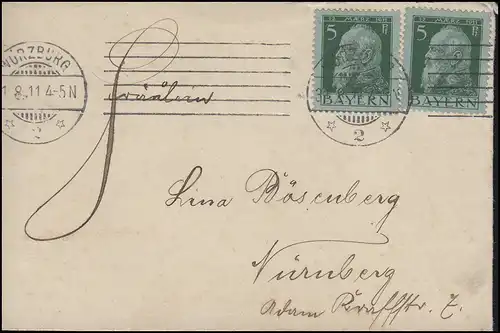 WÜRZBURG
1 8.11 4-5N
2
12. MAERZ 1911
5 Pf
BAYERN
12. MAERZ 1911
5 Pf
BAYERN
2
Fräulein
Lina Bösenberg
Nürnberg
Adam Kraftstr. 7.